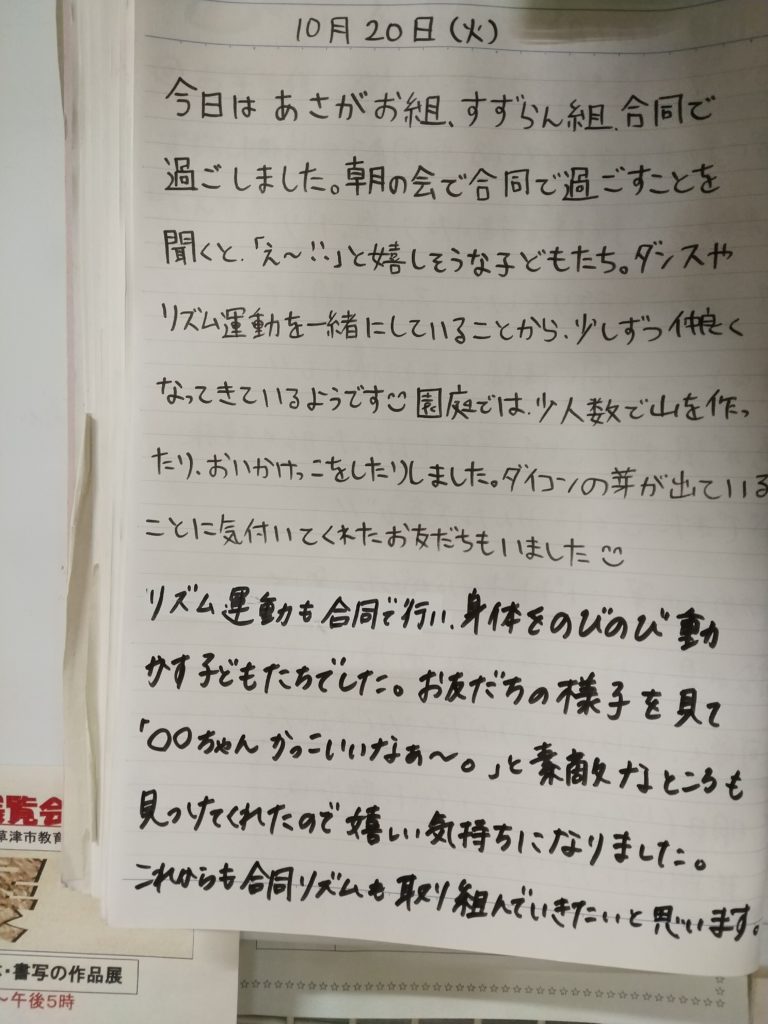 10月20日(火)
今日は あさがお組、すずらん組、合同で
過ごしました。朝の会で合同で過ごすことを
聞くと、「え〜!!」と嬉しそうな子どもたち。ダンスや
リズム運動を一緒にしていることから、少しずつ仲良く
なってきているようです☺ 園庭では、少人数で山を作っ
たり、おいかけっこをしたりしました。ダイコンの芽が出ている
ことに気付いてくれたお友だちもいました☺
リズム運動も合同で行い、身体をのびのび動
かす子どもたちでした。お友だちの様子を見て
「〇〇ちゃん かっこいいなぁ〜。」と素敵なところも
見つけてくれたので嬉しい気持ちになりました。
これからも合同リズムも取り組んでいきたいと思います。
覧会
草津市教育
・書写の作品展
〜午後5時